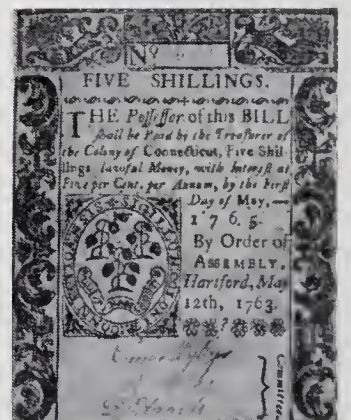 No
FIVE SHILLINGS.
THE Poſſeſſor of this BILL
ſhall be Paid by the Treaſurer of
the Colony of Connecticut, Five Shil-
lings lawful Money, with Intereſt at
Five per Cent. per Annum, by the Firſt
Day of May,—
1765.
By Order of
ASSEMBLY.
Hartford, May
12th, 1763.
Committee